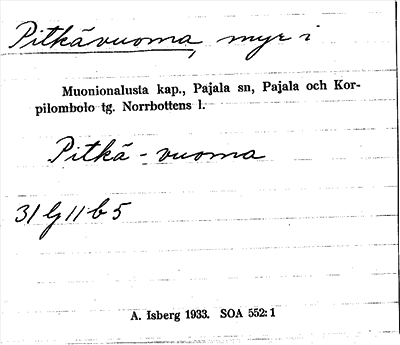 Pitkävuoma, myr i
Muonionalusta kap., Pajala sn, Pajala och Kor-
pilombolo tg. Norrbottens l.
Pitkä-vuoma
31 lj 11 b 5
A. Isberg 1933. SOA 552:1